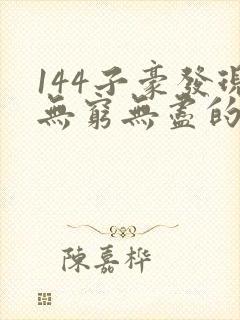 144子豪發現
無窮無盡的
陳嘉桦